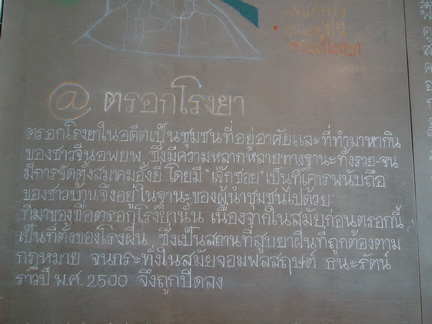 @ ตรอกโรงยา
ตรอกโรงยาในอดีตเป็นชุมชนที่อยู่อาศัยและที่ทำมาหากิน
ของชาวจีนอพยพ ซึ่งมีความหลากหลายทางฐานะทั้งรวย-จน
มีการจัดตั้งสมาคมอั้งยี่ โดยมี "เจ๊กซอย" เป็นที่เคารพนับถือ
ของชาวบ้านจึงอยู่ในฐานะของผู้นำชุมชนไปด้วย
ที่มาของชื่อตรอกโรงยานั้น เนื่องจากในสมัยก่อนตรอกนี้
เป็นที่ตั้งของโรงฝิ่น ซึ่งเป็นสถานที่สูบยาฝิ่นที่ถูกต้องตาม
กฎหมาย จนกระทั่งในสมัยจอมพลสฤษดิ์ ธนะรัตน์
ราวปี พ.ศ. 2500 จึงถูกปิดลง